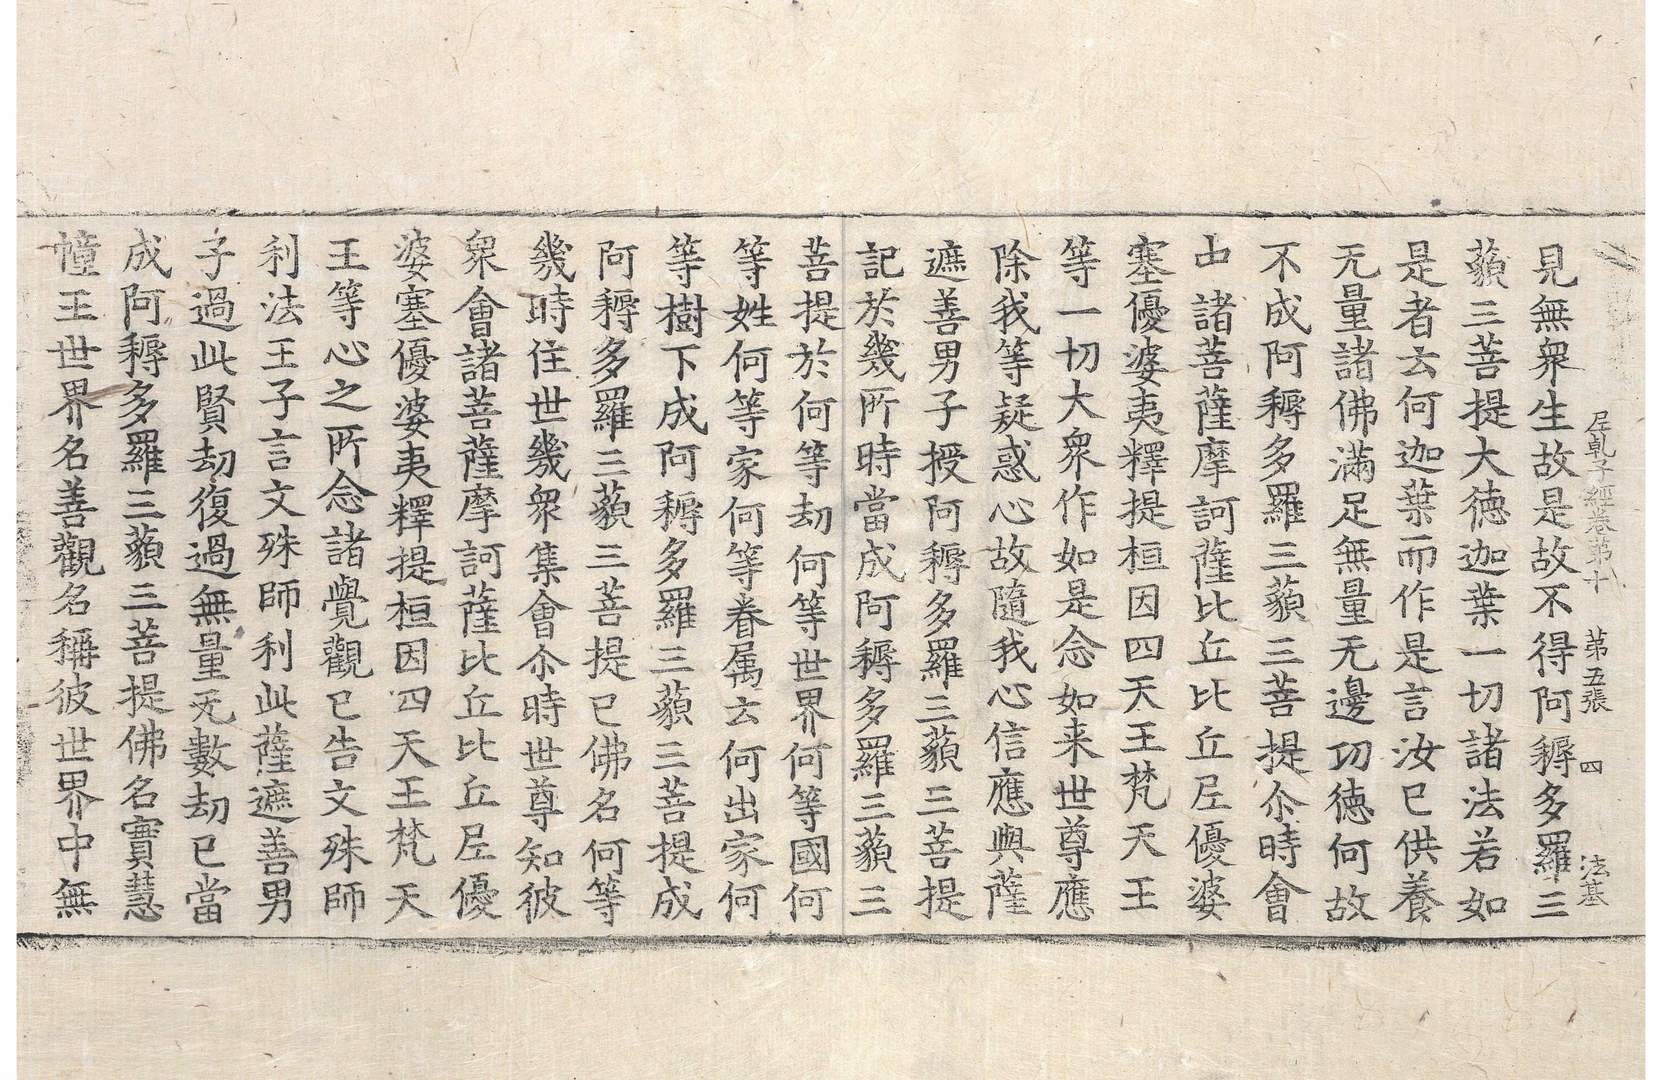 𡰱乹子經卷第十　第五張　四　法基
見無衆生故是故不得阿耨多羅三
藐三菩提大德迦葉一切諸法若如
是者云何迦葉而作是言汝已供養
无量諸佛滿足無量无邊功德何故
不成阿耨多羅三藐三菩提尒時會
中諸菩薩摩訶薩比丘比丘尼優婆
塞優婆夷釋提桓因四天王梵天王
等一切大衆作如是念如来世尊應
除我等疑惑心故隨我心信應與薩
遮善男子授阿耨多羅三藐三菩提
記於幾所時當成阿耨多羅三藐三
菩提於何等劫何等世界何等國何
等姓何等家何等眷属云何出家何
等樹下成阿耨多羅三藐三菩提成
阿耨多羅三藐三菩提已佛名何等
幾時住世幾衆集會尒時世尊知彼
衆會諸菩薩摩訶薩比丘比丘尼優
婆塞優婆夷釋提桓因四天王梵天
王等心之所念諸覺觀已告文殊師
利法王子言文殊師利此薩遮善男
子過此賢劫復過無量无數劫已當
成阿耨多羅三藐三菩提佛名實慧
幢王世界名善觀名稱彼世界中無